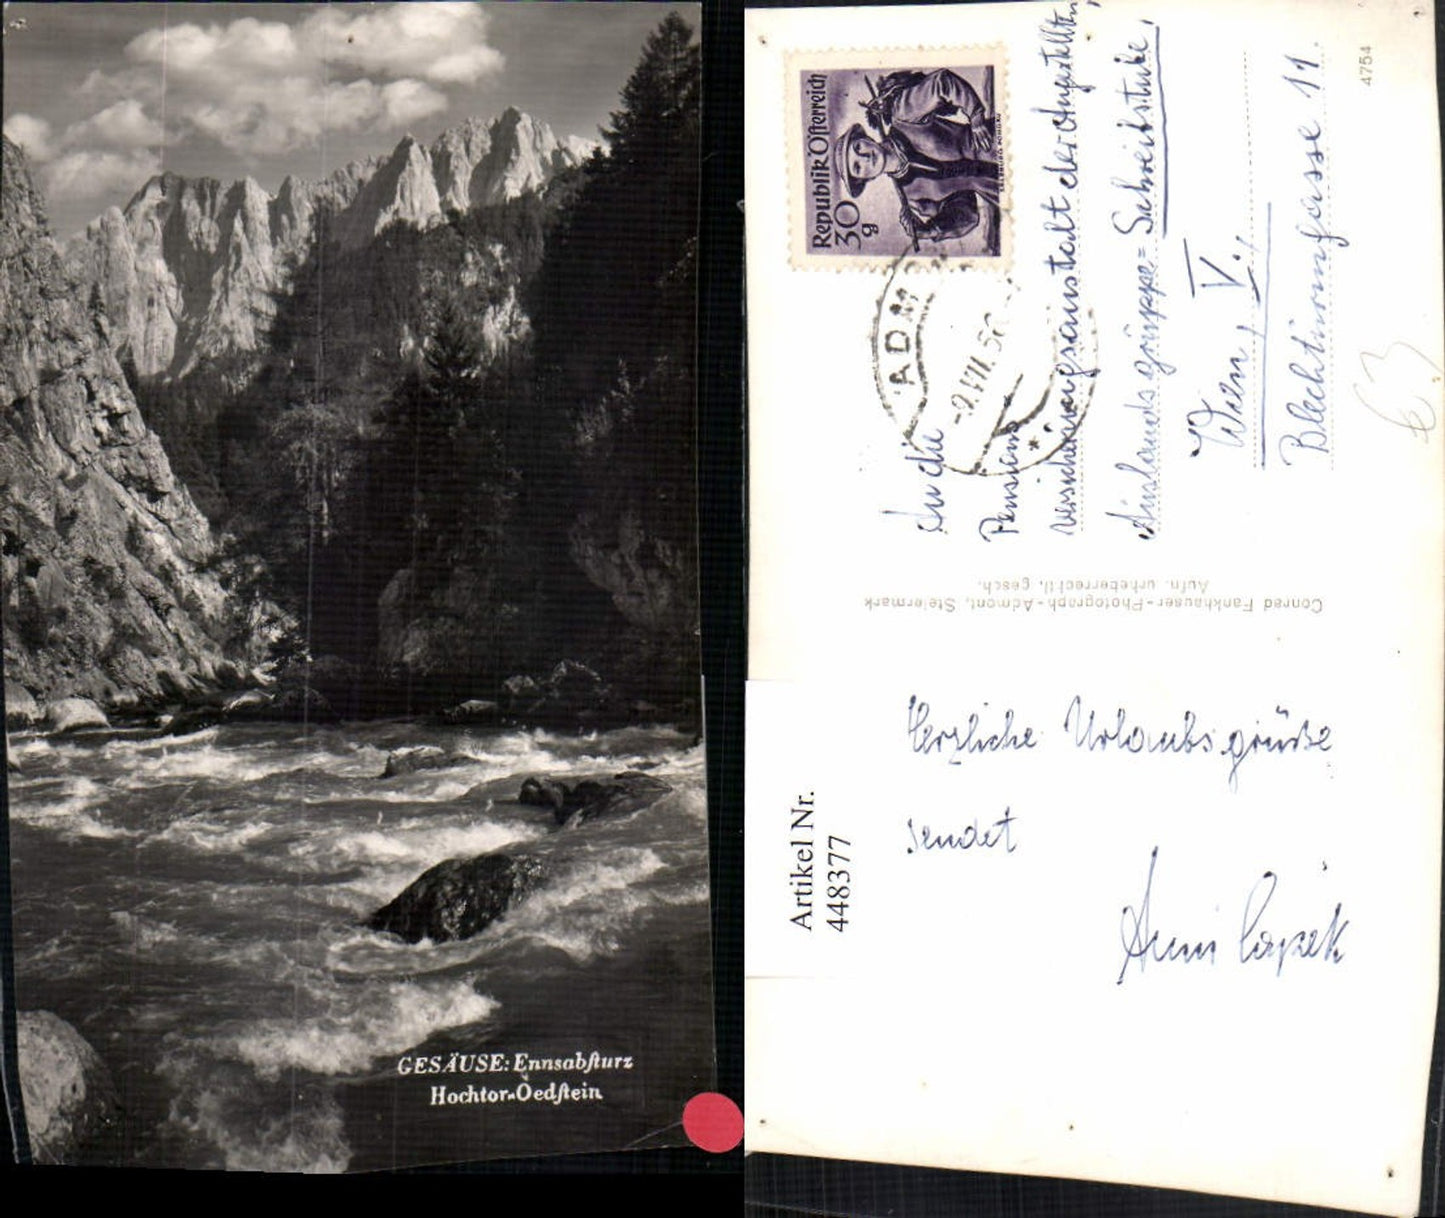 GESÄUSE: Ennsabſturz
Hochtor-Oedſtein
Republik Öſterreich
30
g
ADM
-9.VIII.5
An die
Pensions
versicherungsanstalt der Angestellten,
Auslandsgruppe = Schreibstube,
Wien, V.,
Blechturmgasse 11.
4754
€ 3
Conrad Fankhauser-Photograph-Admont, Steiermark
Aufn. urheberrechtl. gesch.
Herzliche Urlaubsgrüße
sendet
Anni Capek
Artikel Nr.
448377